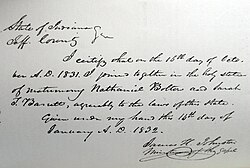 State of Indiana
Jeff. County
I certify that on the 15th day of Octo-
ber A.D. 1831. I joined together in the holy state
of matrimony Nathaniel Bolter and Sarah
T. Barrett, agreeably to the laws of the state.
Given under my hand this 15th day of
January A.D. 1832.
James H. Johnston